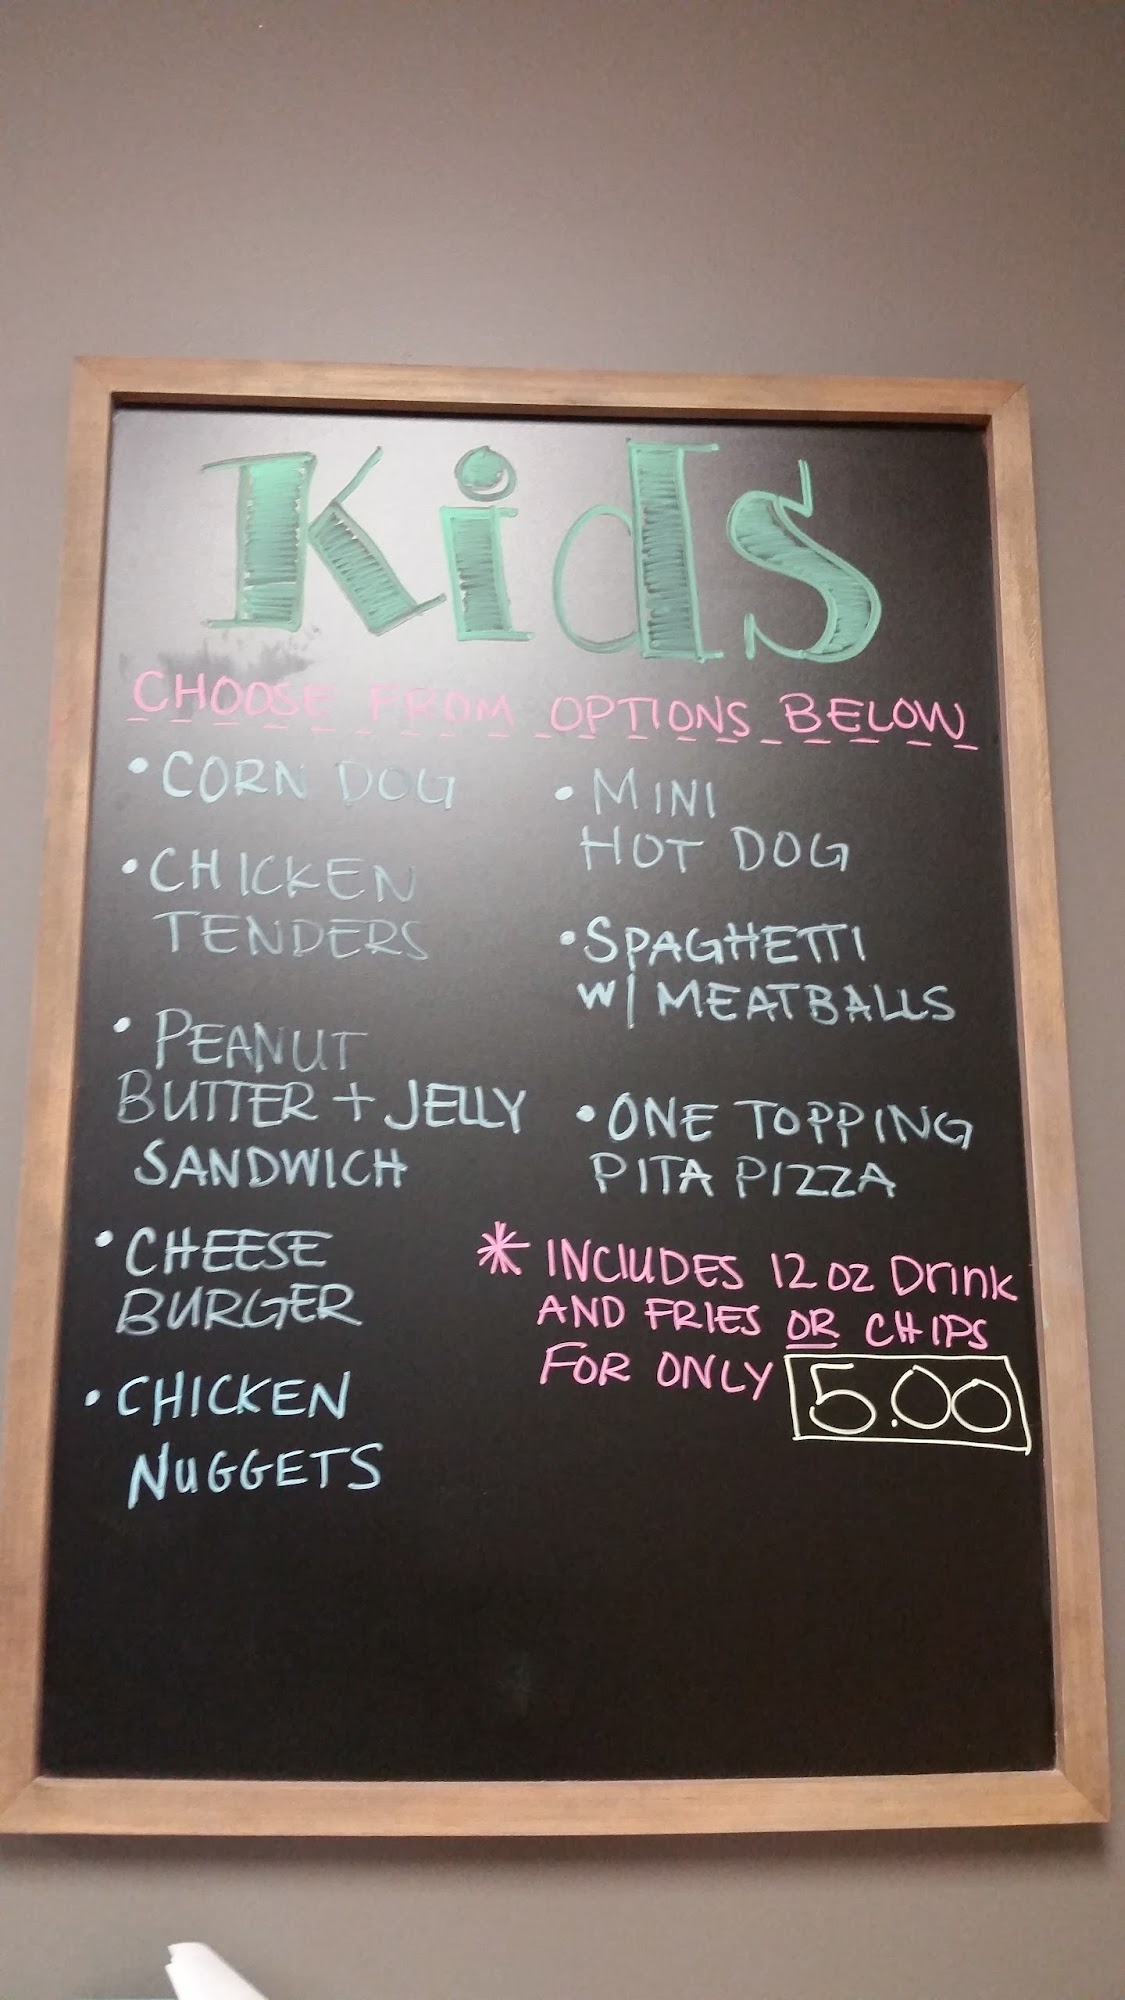 Kids
CHOOSE FROM OPTIONS BELOW
• CORN DOG
• CHICKEN
TENDERS
• PEANUT
BUTTER + JELLY
SANDWICH
• CHEESE
BURGER
• CHICKEN
NUGGETS
• MINI
HOT DOG
• SPAGHETTI
W/ MEATBALLS
• ONE TOPPING
PITA PIZZA
* INCLUDES 12 oz Drink
AND FRIES OR CHIPS
FOR ONLY 5.00